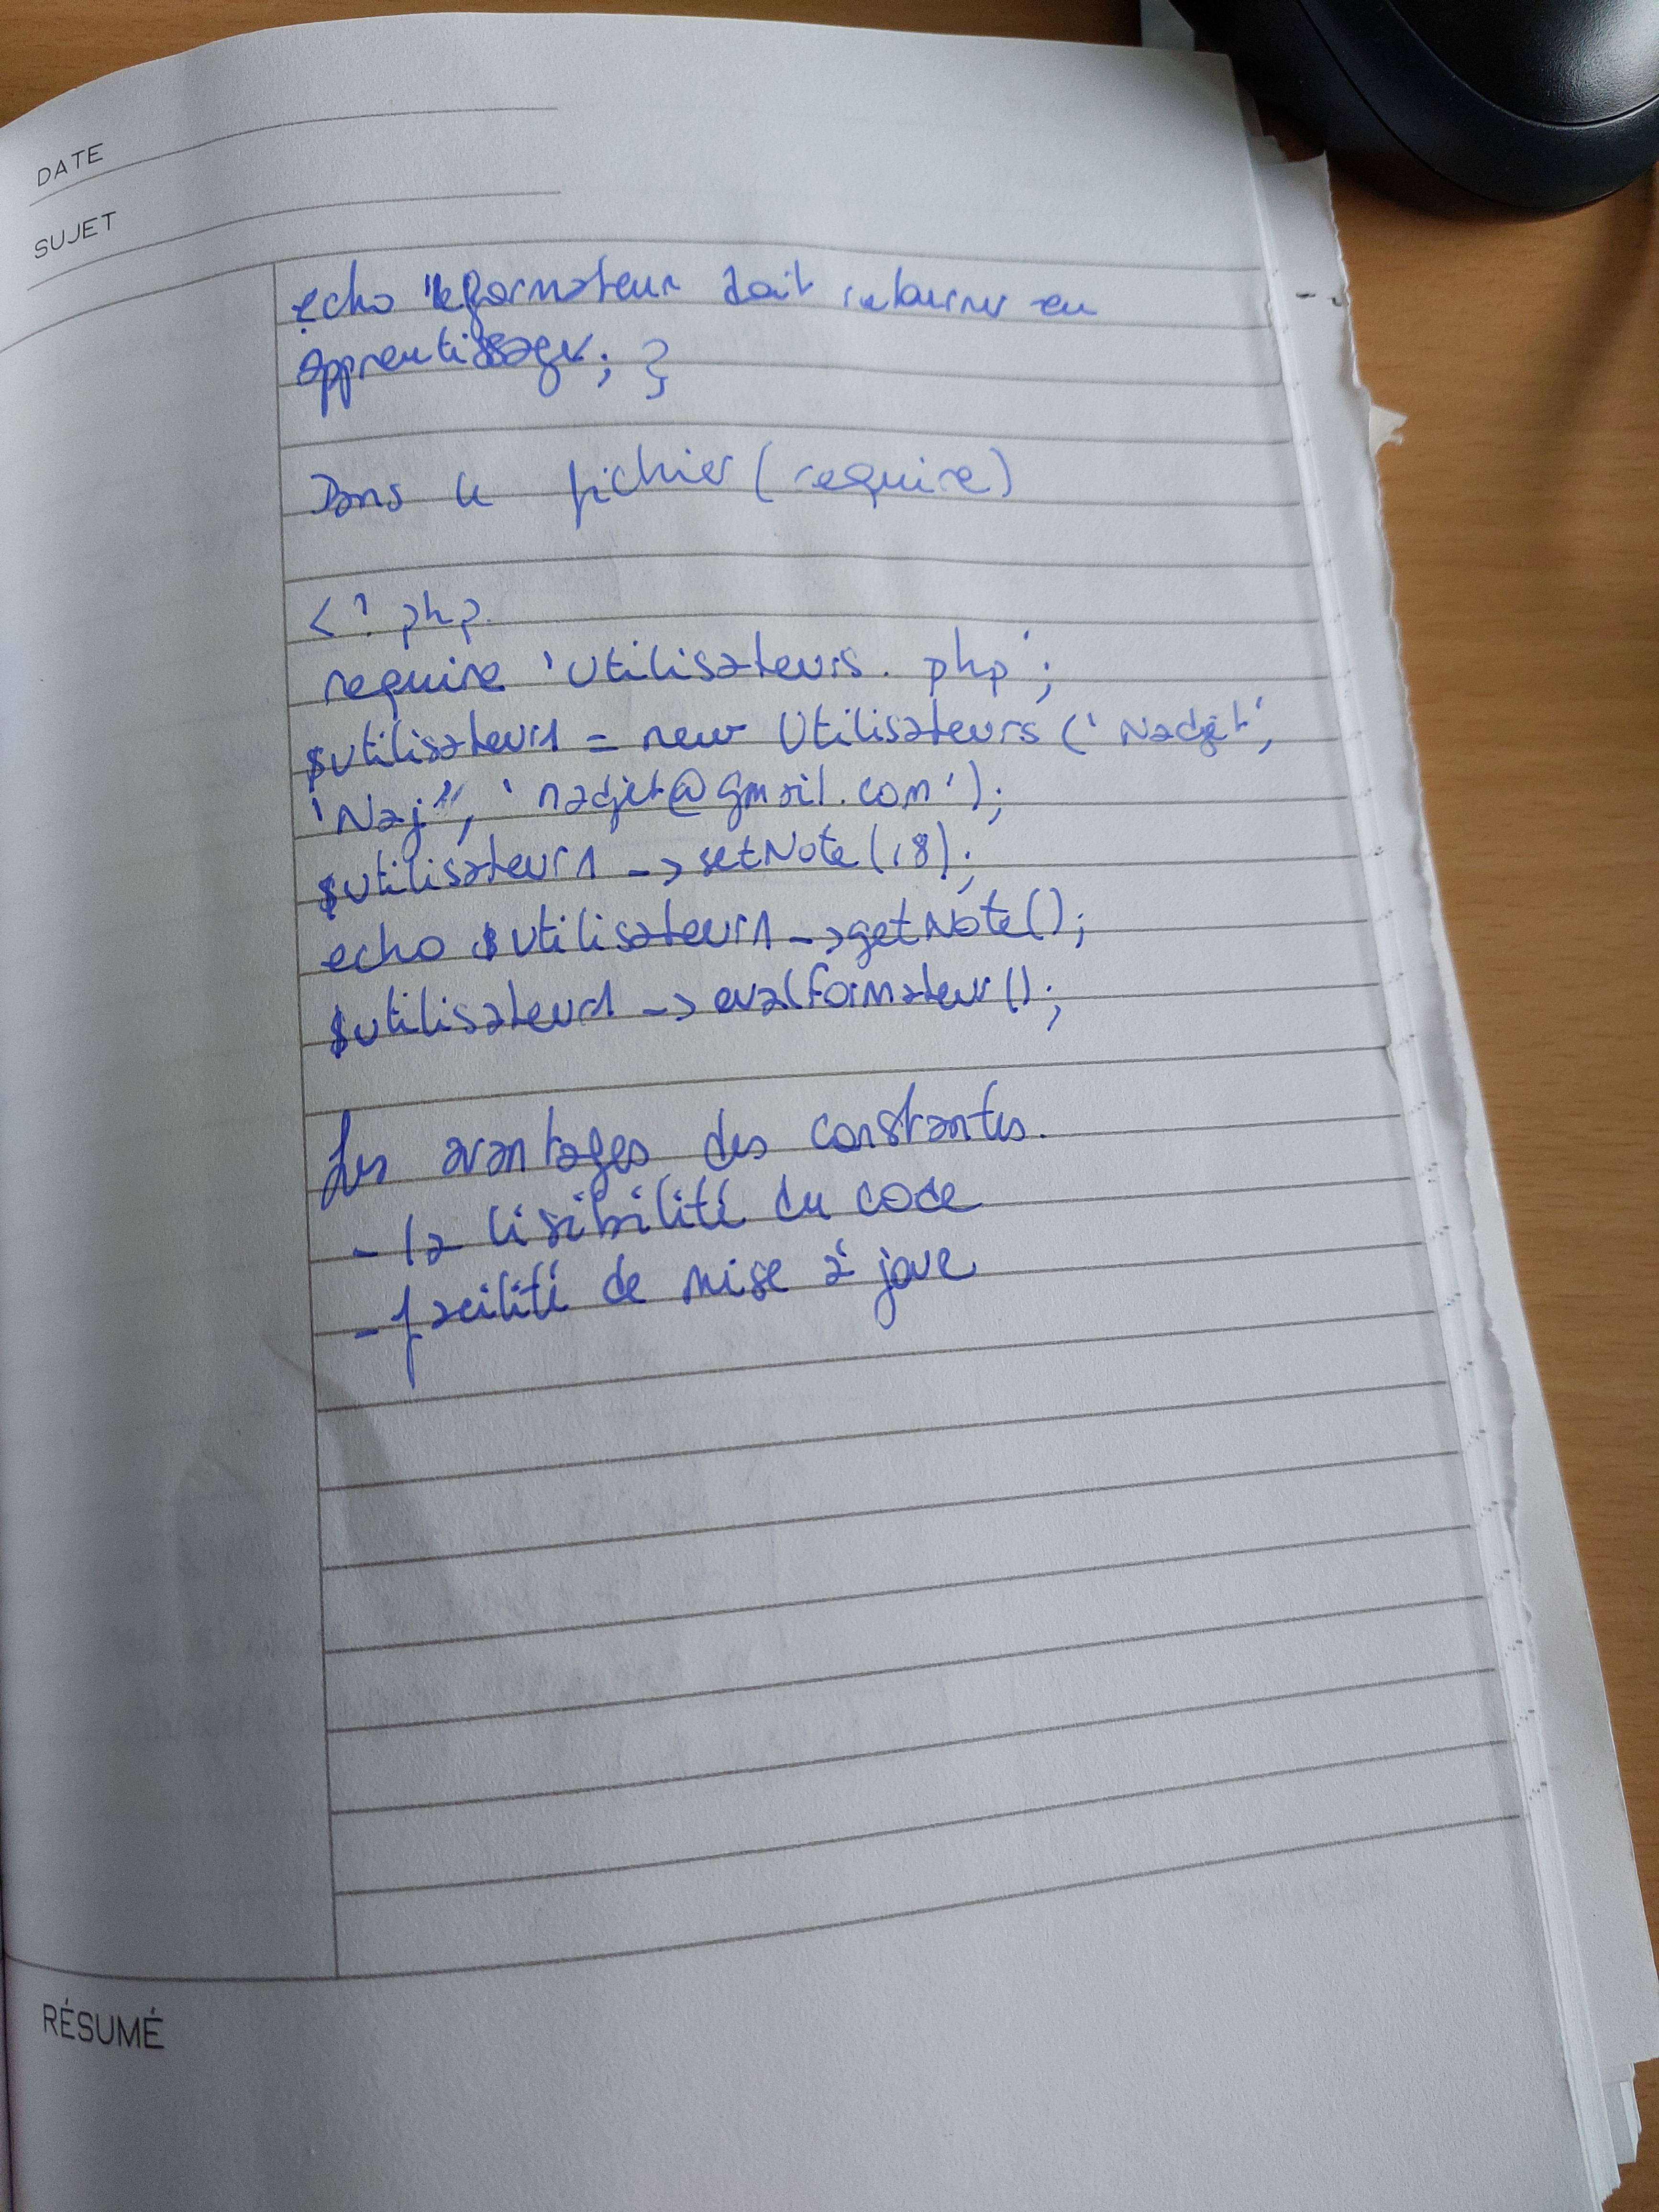 DATE
SUJET
echo "le formateur doit retourner en
apprentissage; }
Dans le fichier (require)
<? php.
require 'Utilisateurs.php';
$utilisateur1 = new Utilisateurs ('Nadjet',
'Naj", 'nadjet@gmail.com');
$utilisateur1 -> setNote(18);
echo $utilisateur1 -> getNote();
$utilisateur1 -> evalformateur();
Les avantages des constantes.
- la lisibilité du code
- facilité de mise à joue
RÉSUMÉ